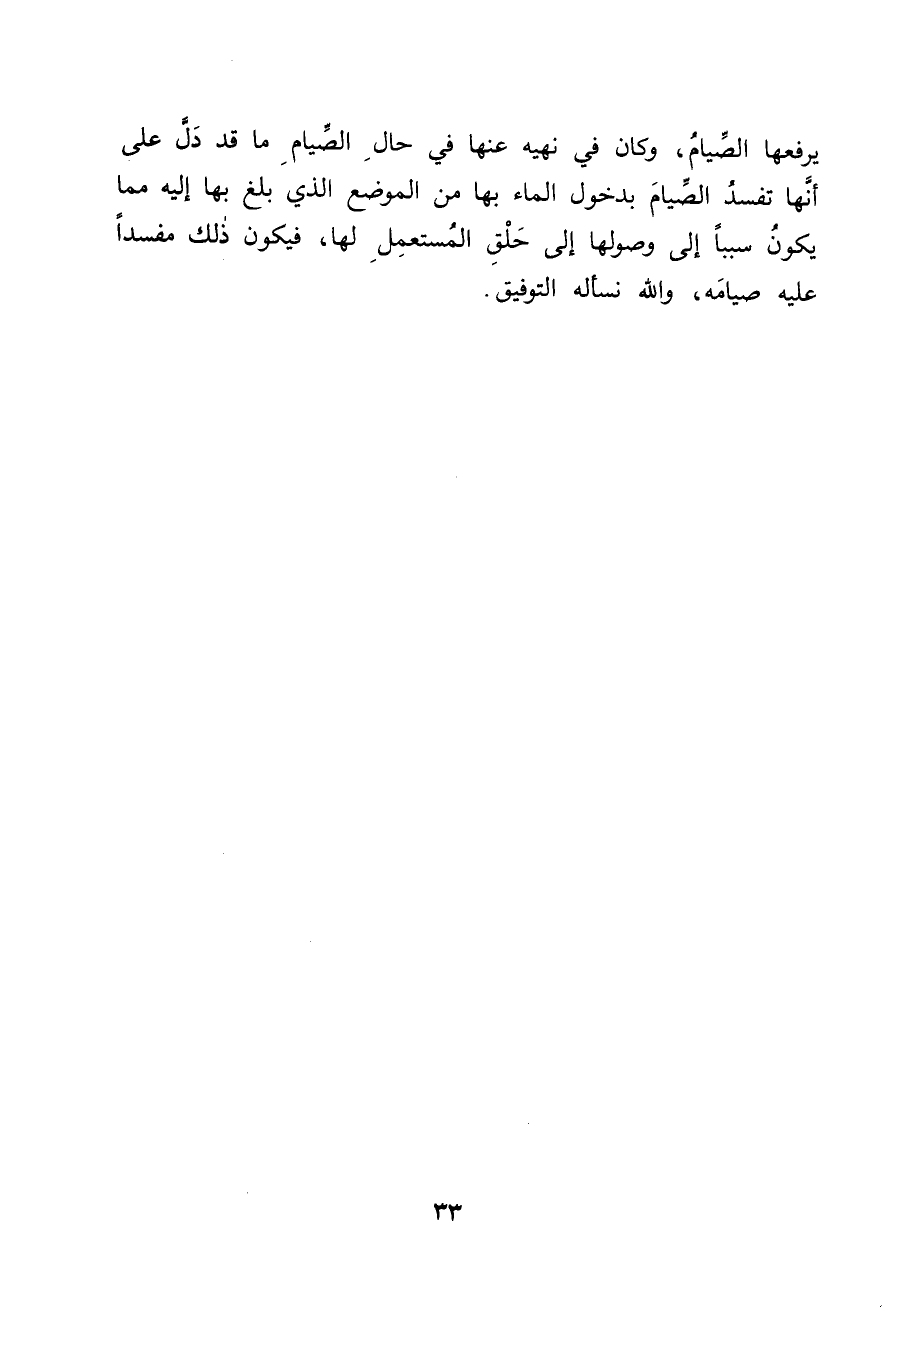 يرفعها الصِّيامُ، وكان في نهيه عنها في حالِ الصِّيامِ ما قد دَلَّ على
أنَّها تفسدُ الصِّيامَ بدخول الماء بها من الموضع الذي بلغ بها إليه مما
يكونُ سبباً إلى وصولها إلى حَلْقِ المُستعمِلِ لها، فيكون ذٰلك مفسداً
عليه صيامَه، والله نسأله التوفيق.
٣٣